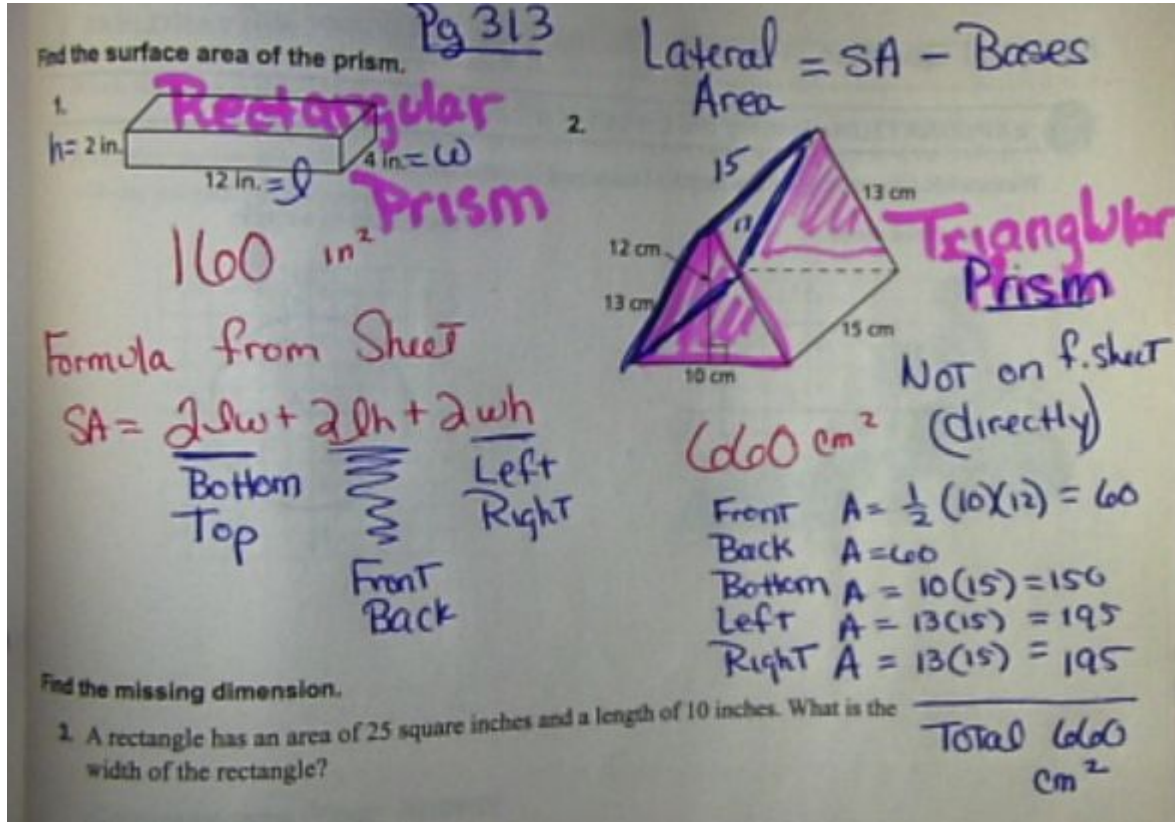 Pg 313
Find the surface area of the prism.
Lateral Area = SA - Bases
1.
Rectangular
Prism
h= 2 in.
4 in. = w
12 in. = l
160 in²
Formula from Sheet
SA = 2lw + 2lh + 2wh
Bottom
Top
Front
Back
Left
Right
2.
15
13
13 cm
12 cm
13 cm
15 cm
10 cm
Trianglular
Prism
Not on f. sheet
(directly)
660 cm²
Front A = 1/2 (10)(12) = 60
Back A = 60
Bottom A = 10(15) = 150
Left A = 13(15) = 195
Right A = 13(15) = 195
Total 660
cm²
Find the missing dimension.
3. A rectangle has an area of 25 square inches and a length of 10 inches. What is the
width of the rectangle?